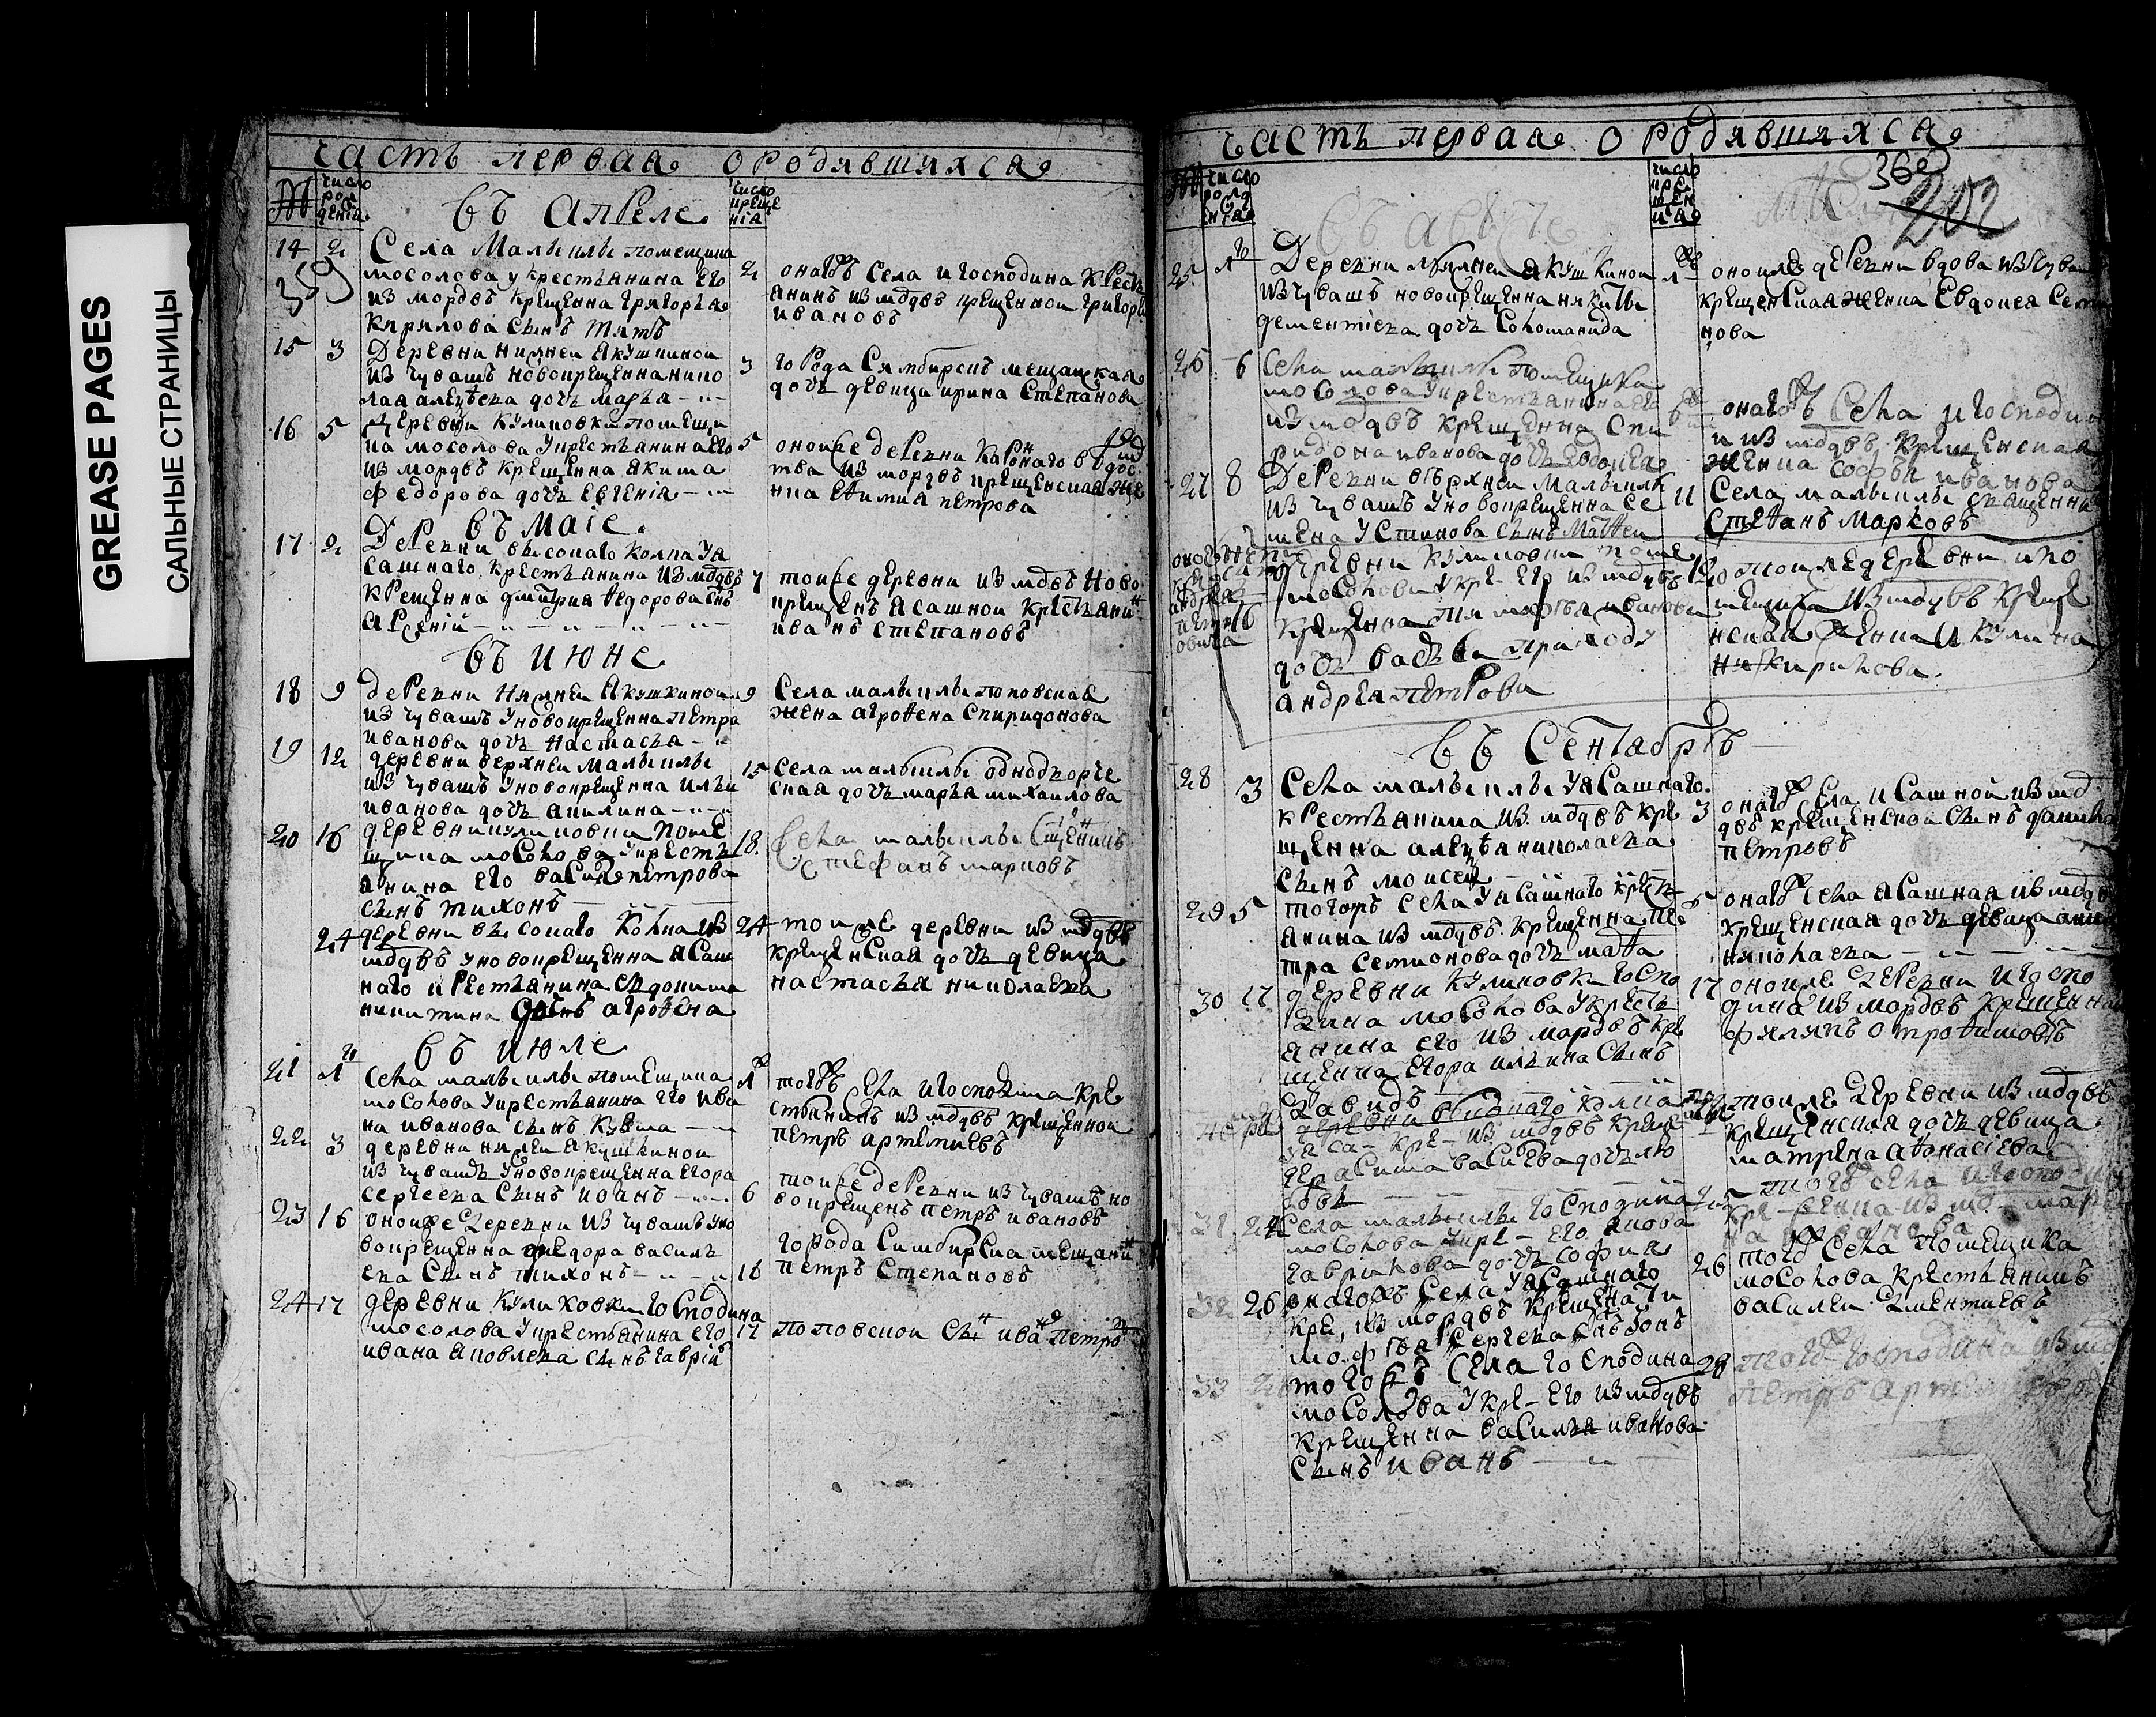 GREASE PAGES
САЛЬНЫЕ СТРАНИЦЫ
часть первая о родившихся
число рождения
число крещения
въ апреле
14 2 Села Малыклы помещика
мосолова у крестьянина его
из мордвъ крещенна григорья
кирилова сынъ титъ
2 онагожъ села и господина крестьянинъ из мордвъ крещенной григорьи
ивановъ
359
15 3 Деревни нижней Якушкиной
из чувашъ новокрещенна николая алеѯѣева дочь марья
3 города симбирскъ мещанская
дочь девица ирина Степанова
16 5 Деревни куликовки помещика мосолова у крестьянина его
из мордвъ крещенна якима
федорова дочь евгенія
5 оной же деревни
из мордвъ крещенская женка евимия петрова
въ маіе
17 2 Деревни высокаго колка уясашнаго крестьянина из мордвъ
крещенна дмитрия ѳедорова сынъ
арсеній
7 тоиже деревни из мордвъ новокрещенъ ясашной крестьянинъ
иванъ степановъ
въ июне
18 9 деревни нижней якушкиной
из чувашъ у новокрещенна петра
иванова дочь настасья
9 Села малыклы поповская
жена агроѳена спиридонова
19 12 деревни верхней малыклы
из чувашъ у новокрещенна ильи
иванова дочь акилина
15 села малыклы однодворческая дочь марья михаилова
20 16 деревни куликовки помещика мосолова у крестьянина его василья петрова
сынъ тихонъ
18 Села малыклы священникъ
стефанъ марковъ
24 деревни высокаго колка из
мордвъ у новокрещенна ясашнаго крестьянина евдокима
никитина дочь агроѳена
24 тоиже деревни из мордвъ
крещенская дочь девица
настасья николаева
въ июле
21 1 села малыклы помещика
мосолова у крестьянина его ивана иванова сынъ кузма
1 тогожъ села и господина крестьянинъ из мордвъ крещенной
петръ артемиевъ
22 3 деревни нижней якушкиной
из чувашъ у новокрещенна егора
сергеева сынъ иоанъ
6 тоиже деревни из чувашъ новокрещенъ петръ ивановъ
23 16 оной же деревни из чувашъ у новокрещенна ѳедора васильева сынъ тихонъ
16 города симбирска мещанинъ
петръ степановъ
24 17 деревни куликовки господина
мосолова у крестьянина его
ивана яковлева сынъ гаврій
17 поповской сынъ иванъ петровъ
часть первая о родившихся
число рождения
число крещения
360
202
въ августе
25 1 Деревни нижней якушкиной
из чувашъ новокрещенна никиты
дементиева дочь соломанида
1 оноиже деревни вдова из чувашъ
крещенская женка евдокея семенова
26 6 села малыклы помещика
мосолова у крестьянина его
из мордвъ крещенна спиридона иванова дочь евдокея
6 онагожъ села и господина
из мордвъ крещенская
женка софья иванова
27 8 Деревни верхней малыклы
из чувашъ у новокрещенна семена устинова сынъ матѳеи
11 села малыклы священникъ
стеѳанъ марковъ
деревни куликовки
мосолова у кре- его из мордвъ
крещенна тимофея иванова
дочь
андрея петрова
тоиже деревни и помещика из мордвъ крещенская женка акулина
кирилова
въ сентябрѣ
28 3 села малыклы уясашнаго
крестьянина из мордвъ крещенна алеѯѣя николаева
сынъ моисей
3 онагожъ села ясашной из мордвъ крещенской сынъ данила
петровъ
29 5 тогожъ села уясашнаго крестьянина из мордвъ крещенна петра семионова дочь марѳа
5 онагожъ села ясашная из мордвъ
крещенская дочь девица анна
николаева
30 17 деревни куликовки господина мосолова у крестьянина его из мордвъ крещенна егора ильина сынъ
давидъ
17 оноиже деревни и господина из мордвъ крещенной
филипъ отроѳимовъ
деревни высокаго колка
ясаш- кре- из мордвъ креще-
герасима васильева дочь любовь
тоиже деревни из мордвъ
крещенская дочь девица
матрена аѳонасіева
31 24 села малыклы господина
мосолова у кре- его якова
гаврилова дочь софия
тогожъ села и господина
кре- женка из мо-
32 26 онагожъ села уясашнаго
кре, из мордвъ крещена тимофея сергеева сынъ ионъ
26 тогожъ села помещика
мосолова крестьянинъ
василей дментиевъ
33 тогожъ села господина
мосолова у кре- его из мордвъ
крещенна василья иванова
сынъ иванъ
28 тогожъ господина из мор
петръ артемиевъ